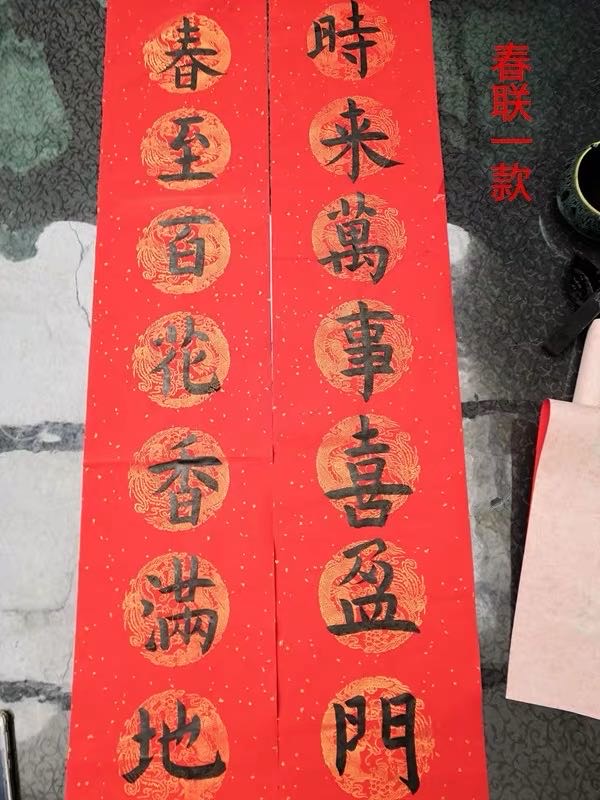 春联一款
時来萬事喜盈門
春至百花香滿地